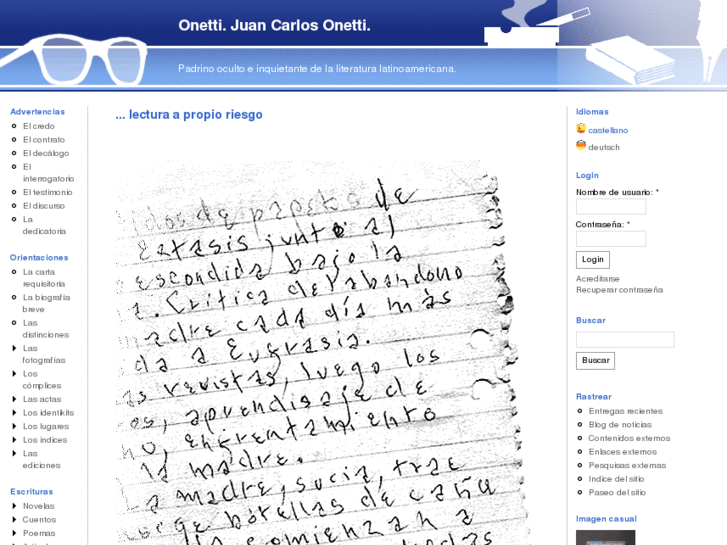 Onetti. Juan Carlos Onetti.
Padrino oculto e inquietante de la literatura latinoamericana.
Advertencias
El credo
El contrato
El decálogo
El
interrogatorio
El testimonio
El discurso
La
dedicatoria
Orientaciones
La carta
requisitoria
La biografía
breve
Las
distinciones
Las
fotografías
Los
cómplices
Las actas
Los identikits
Los lugares
Los índices
Las
ediciones
Escrituras
Novelas
Cuentos
Poemas
... lectura a propio riesgo
de
éxtasis junto al
escondida bajo la
a. Crítica del abandono
madre cada día más
da a Eufrasia.
as revistas, luego los
os, aprendisaje de
no, enfrentamiento
la madre.
La madre, sucia, trae
botellas de caña
comienzan a
Idiomas
castellano
deutsch
Login
Nombre de usuario: *
Contraseña: *
Login
Acreditarse
Recuperar contraseña
Buscar
Buscar
Rastrear
Entregas recientes
Blog de noticias
Contenidos externos
Enlaces externos
Pesquisas externas
Indice del sitio
Paseo del sitio
Imagen casual